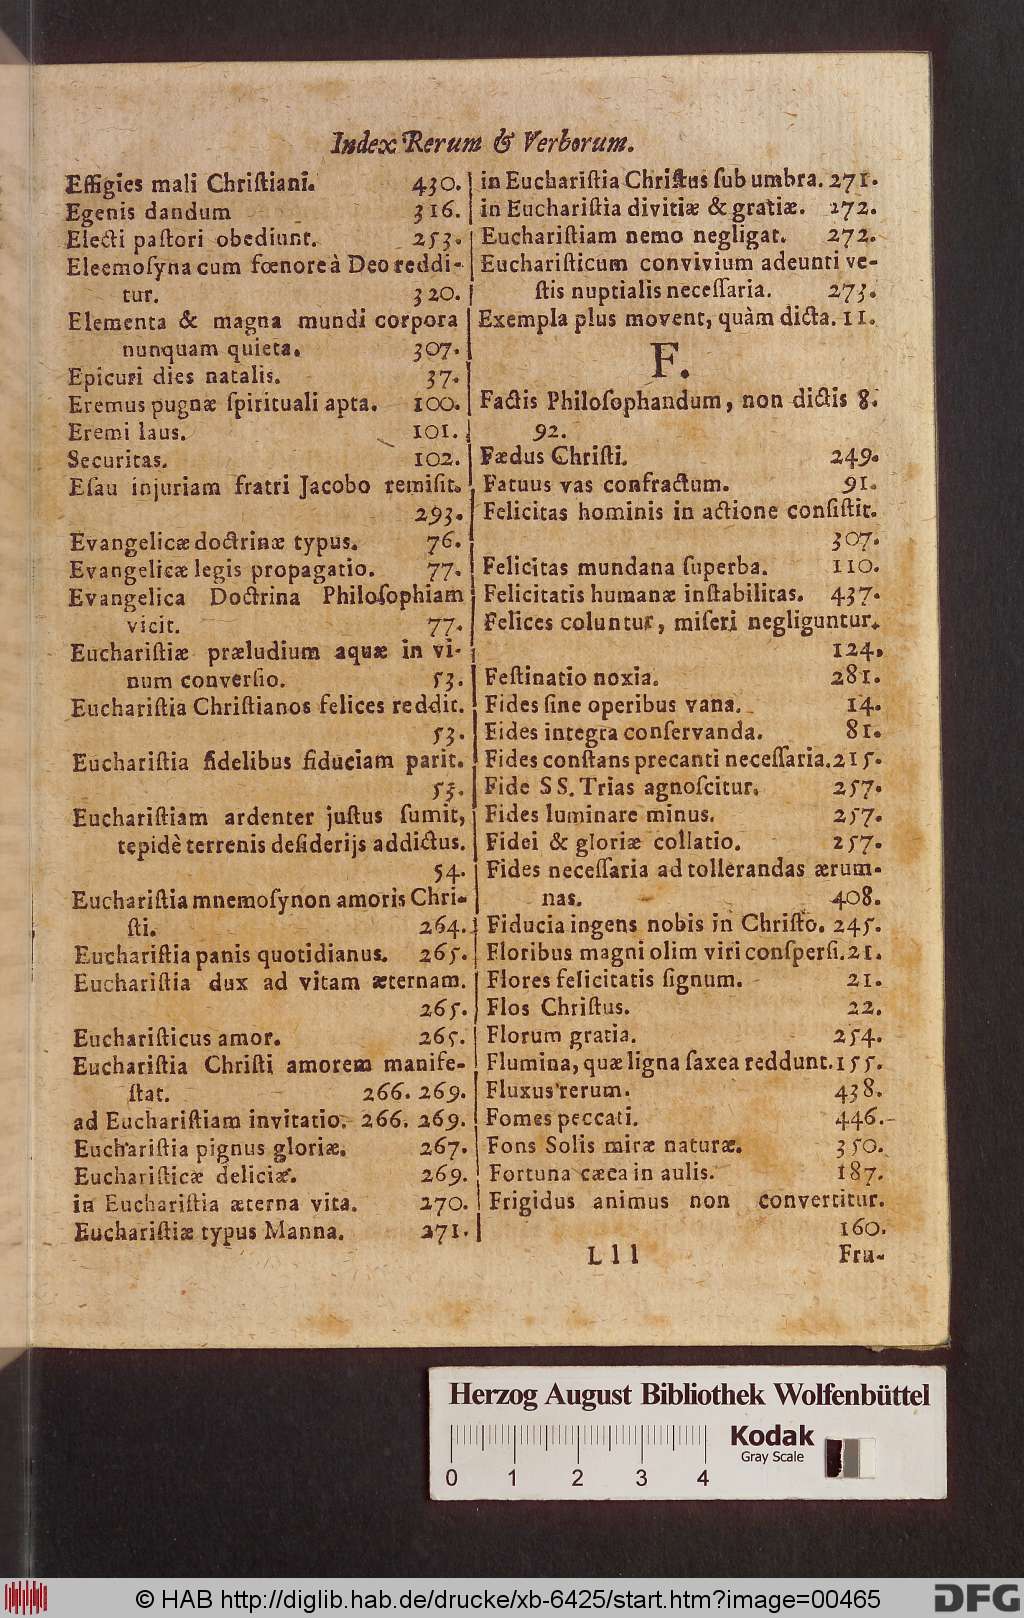 Index Rerum & Verborum.
Effigies mali Chriſtiani. 430.
Egenis dandum 316.
Electi paſtori obediunt. 253.
Eleemoſyna cum fœnore à Deo reddi-
tur. 320.
Elementa & magna mundi corpora
nunquam quieta. 307.
Epicuri dies natalis. 37.
Eremus pugnæ ſpirituali apta. 100.
Eremi laus. 101.
Securitas. 102.
Eſau injuriam fratri Jacobo remiſit.
293.
Evangelicæ doctrinæ typus. 76.
Evangelicæ legis propagatio. 77.
Evangelica Doctrina Philoſophiam
vicit. 77.
Euchariſtiæ præludium aquæ in vi-
num converſio. 53.
Euchariſtia Chriſtianos felices reddit.
53.
Euchariſtia fidelibus fiduciam parit.
53.
Euchariſtiam ardenter juſtus ſumit,
tepidè terrenis deſiderijs addictus.
54.
Euchariſtia mnemoſynon amoris Chri-
ſti. 264.
Euchariſtia panis quotidianus. 265.
Euchariſtia dux ad vitam æternam.
265.
Euchariſticus amor. 265.
Euchariſtia Chriſti amorem manife-
ſtat. 266. 269.
ad Euchariſtiam invitatio. 266. 269.
Euchariſtia pignus gloriæ. 267.
Euchariſticæ deliciæ. 269.
in Euchariſtia æterna vita. 270.
Euchariſtiæ typus Manna. 271.
in Euchariſtia Chriſtus ſub umbra. 271.
in Euchariſtia divitiæ & gratiæ. 272.
Euchariſtiam nemo negligat. 272.
Euchariſticum convivium adeunti ve-
ſtis nuptialis neceſſaria. 273.
Exempla plus movent, quàm dicta. 11.
F.
Factis Philoſophandum, non dictis 8.
92.
Fædus Chriſti. 249.
Fatuus vas confractum. 91.
Felicitas hominis in actione conſiſtit.
307.
Felicitas mundana ſuperba. 110.
Felicitatis humanæ inſtabilitas. 437.
Felices coluntur, miſeri negliguntur.
124.
Feſtinatio noxia. 281.
Fides ſine operibus vana. 14.
Fides integra conſervanda. 81.
Fides conſtans precanti neceſſaria. 215.
Fide SS. Trias agnoſcitur. 257.
Fides luminare minus. 257.
Fidei & gloriæ collatio. 257.
Fides neceſſaria ad tollerandas ærum-
nas. 408.
Fiducia ingens nobis in Chriſto. 245.
Floribus magni olim viri conſperſi. 21.
Flores felicitatis ſignum. 21.
Flos Chriſtus. 22.
Florum gratia. 254.
Flumina, quæ ligna ſaxea reddunt. 155.
Fluxus rerum. 438.
Fomes peccati. 446.
Fons Solis miræ naturæ. 350.
Fortuna cæca in aulis. 187.
Frigidus animus non convertitur.
160.
Lll Fru-
Herzog August Bibliothek Wolfenbüttel
Kodak
Gray Scale
0 1 2 3 4
© HAB http://diglib.hab.de/drucke/xb-6425/start.htm?image=00465
DFG